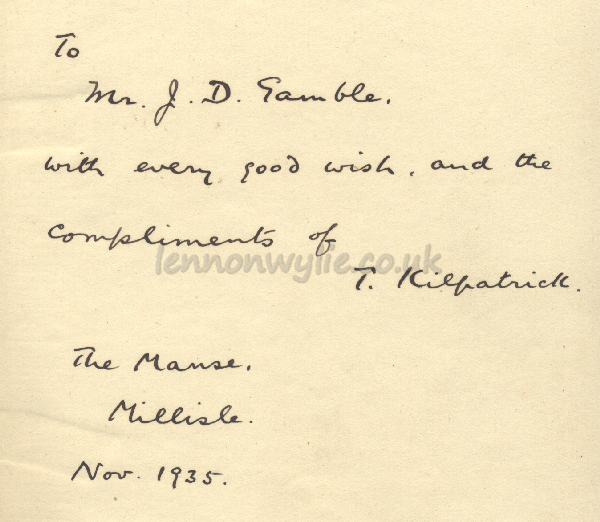 To
Mr. J. D. Gamble.
with every good wish, and the
compliments of
lennonwylie.co.uk
T. Kilpatrick.
The Manse.
Millisle.
Nov. 1935.